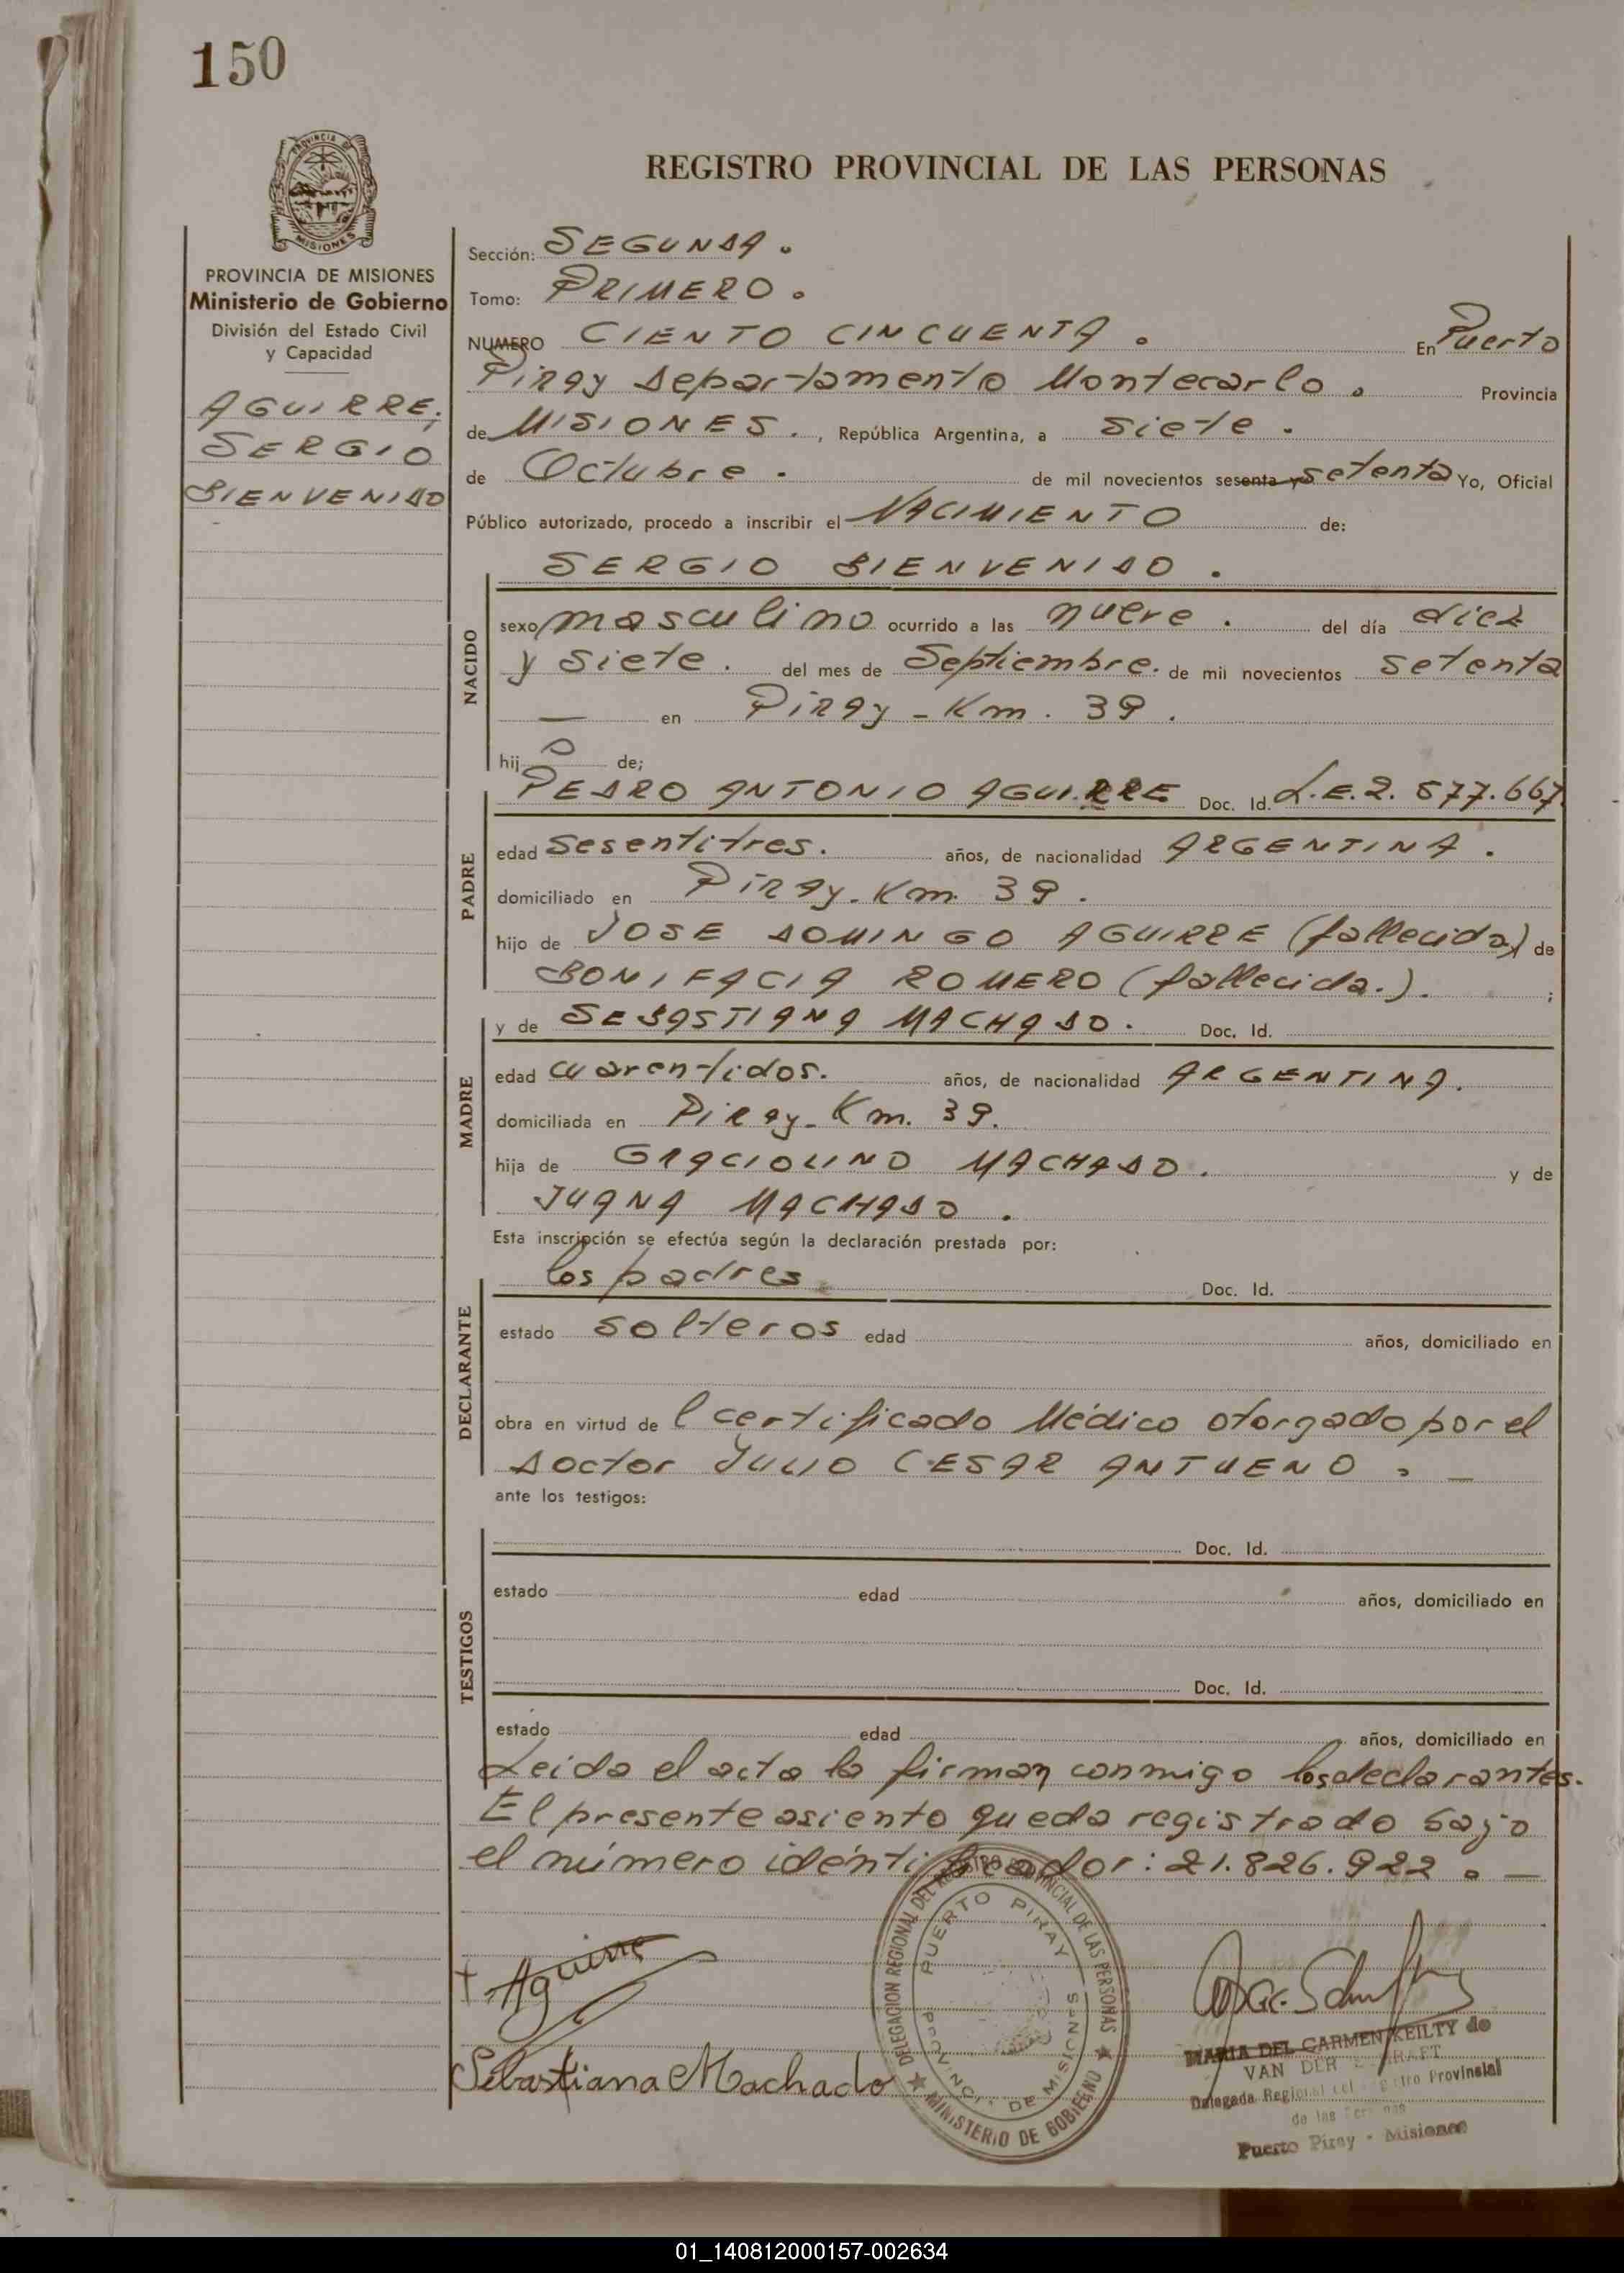 150
REGISTRO PROVINCIAL DE LAS PERSONAS
PROVINCIA DE MISIONES
Ministerio de Gobierno
División del Estado Civil
y Capacidad
AGUIRRE,
SERGIO
BIENVENIDO
Sección: SEGUNDA.
Tomo: PRIMERO.
NUMERO CIENTO CINCUENTA. En Puerto
Piray Departamento Montecarlo. Provincia
de MISIONES., República Argentina, a siete.
de Octubre. de mil novecientos sesenta y setenta Yo, Oficial
Público autorizado, procedo a inscribir el NACIMIENTO de:
SERGIO BIENVENIDO.
NACIDO
sexo masculino ocurrido a las nueve. del día diez
y siete. del mes de Septiembre. de mil novecientos setenta
— en Piray - Km. 39.
hijo de;
PADRE
PEDRO ANTONIO AGUIRRE Doc. Id. L.E. 2.577.667
edad sesentitres. años, de nacionalidad ARGENTINA.
domiciliado en Piray - Km. 39.
hijo de JOSE DOMINGO AGUIRRE (fallecido) y de
BONIFACIA ROMERO (fallecida.). ;
MADRE
y de SEBASTIANA MACHADO. Doc. Id.
edad cuarentidos. años, de nacionalidad ARGENTINA.
domiciliada en Piray - Km. 39.
hija de GRACIOLINO MACHADO. y de
JUANA MACHADO.
Esta inscripción se efectúa según la declaración prestada por:
DECLARANTE
los padres Doc. Id.
estado solteros edad años, domiciliado en
obra en virtud de l certificado Médico otorgado por el
Doctor JULIO CESAR ANTUENO. —
ante los testigos:
TESTIGOS
Doc. Id.
estado edad años, domiciliado en
Doc. Id.
estado edad años, domiciliado en
Leida el acta la firman conmigo los declarantes.
El presente asiento queda registrado bajo
el número idéntificador: 21.826.922. —
Aguirre
Sebastiana Machado
DELEGACION REGIONAL DEL REGISTRO PROVINCIAL DE LAS PERSONAS
PUERTO PIRAY
PROVINCIA DE MISIONES
MINISTERIO DE GOBIERNO
MARIA DEL CARMEN KEILTY de
VAN DER
Delegada Regional del Registro Provincial
de las Personas
Puerto Piray - Misiones
01_140812000157-002634